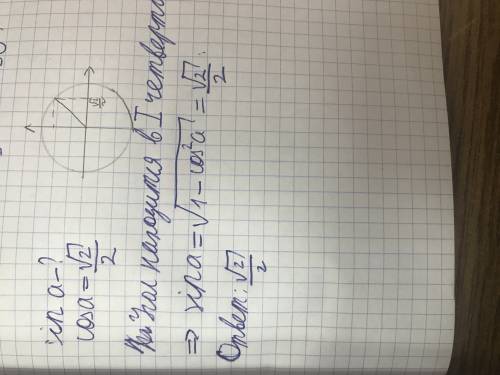 sin a - ?
cos a = √2/2
√2/2
угол находится в I четверти
⇒ sin a = √1 - cos²a = √2/2:
Ответ: √2/2